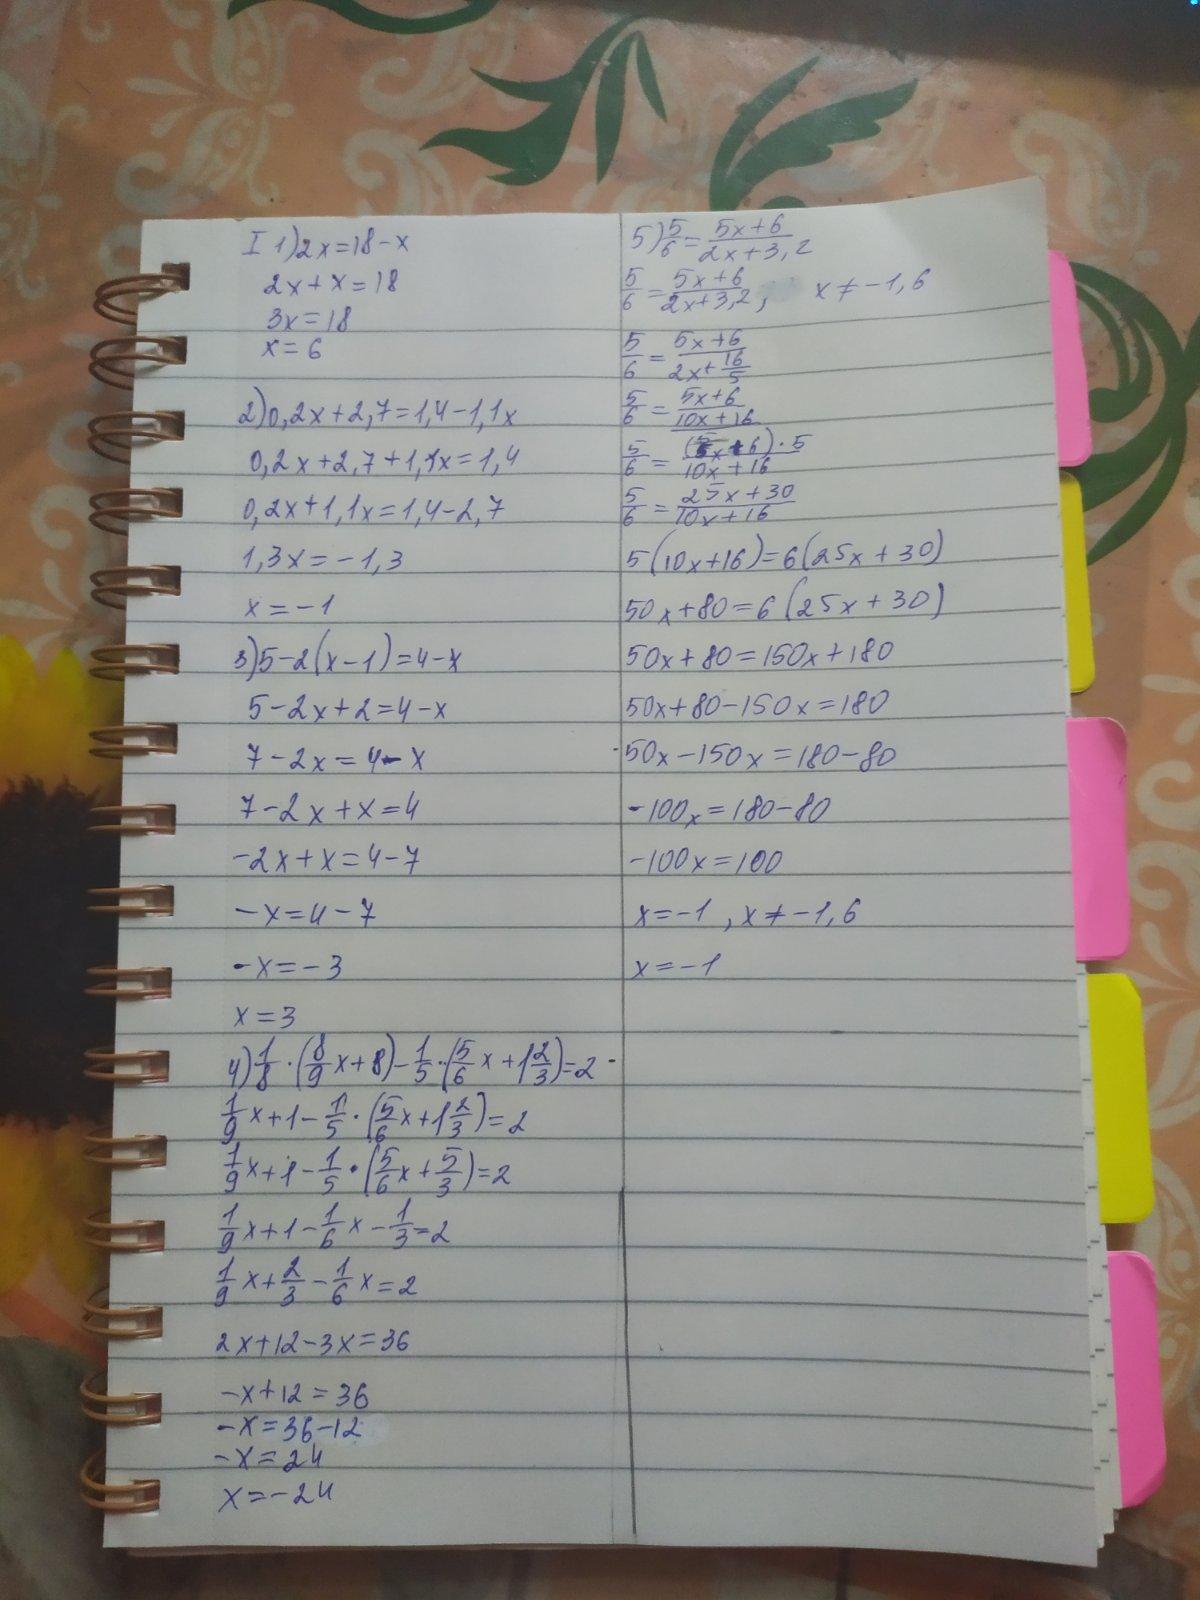 I 1) 2x=18-x
2x+x=18
3x=18
x=6
2) 0,2x+2,7=1,4-1,1x
0,2x+2,7+1,1x=1,4
0,2x+1,1x=1,4-2,7
1,3x=-1,3
x=-1
3) 5-2(x-1)=4-x
5-2x+2=4-x
7-2x=4-x
7-2x+x=4
-2x+x=4-7
-x=4-7
-x=-3
x=3
4) 1/8·(8/9x+8)-1/5·(5/6x+1 2/3)=2
1/9x+1-1/5·(5/6x+1 2/3)=2
1/9x+1-1/5·(5/6x+5/3)=2
1/9x+1-1/6x-1/3=2
1/9x+2/3-1/6x=2
2x+12-3x=36
-x+12=36
-x=36-12
-x=24
x=-24
5) 5/6=(5x+6)/(2x+3,2)
5/6=(5x+6)/(2x+3,2), x≠-1,6
5/6=(5x+6)/(2x+16/5)
5/6=(5x+6)/((10x+16)/5)
5/6=((5x+6)·5)/(10x+16)
5/6=(25x+30)/(10x+16)
5(10x+16)=6(25x+30)
50x+80=6(25x+30)
50x+80=150x+180
50x+80-150x=180
50x-150x=180-80
-100x=180-80
-100x=100
x=-1, x≠-1,6
x=-1